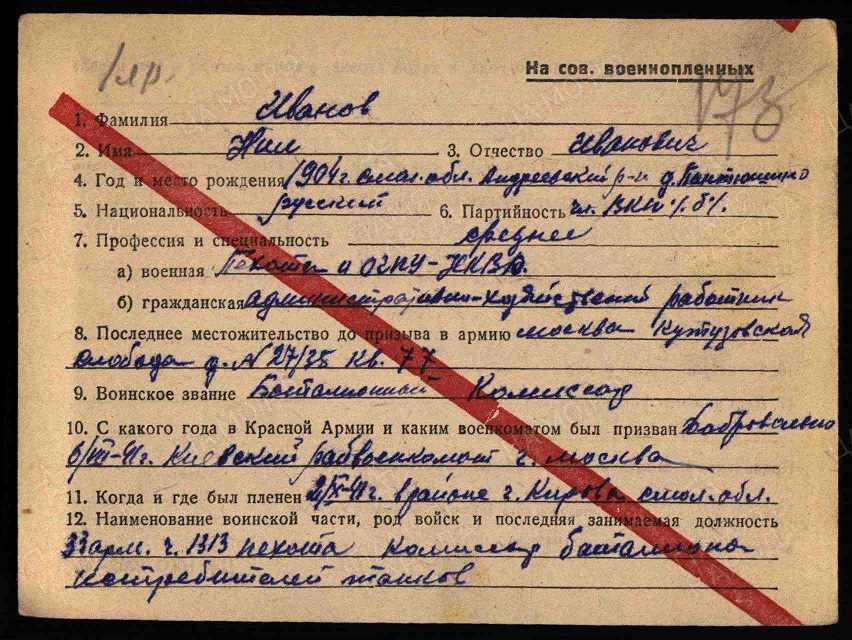 1 яр.
173
На сов. военнопленных
1. Фамилия Иванов
2. Имя Нил 3. Отчество Иванович
4. Год и место рождения 1904 г. Смол. обл. Андреевский р-н д. Пантюшино
5. Национальность русский 6. Партийность чл. ВКП(б)
7. Профессия и специальность среднее
а) военная Пехота и ОГПУ-НКВД.
б) гражданская административно-хозяйственный работник
8. Последнее местожительство до призыва в армию Москва Кутузовская
слобода д. N 27/35 кв. 77
9. Воинское звание Баталионный Комиссар
10. С какого года в Красной Армии и каким военкоматом был призван Добровольно
6/VII-41г. Киевский райвоенкомат г. Москва
11. Когда и где был пленен /X-41г. в районе г. Кирова смол. обл.
12. Наименование воинской части, род войск и последняя занимаемая должность
33 арм. ч. 1313 пехота Комиссар баталиона
истребителей танков